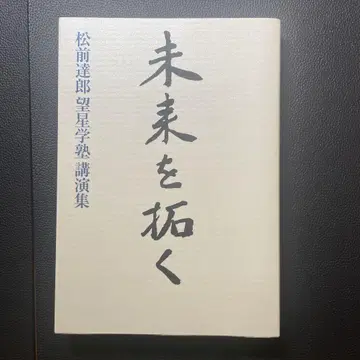 未来を拓く
松前達郎 望星学塾 講演集